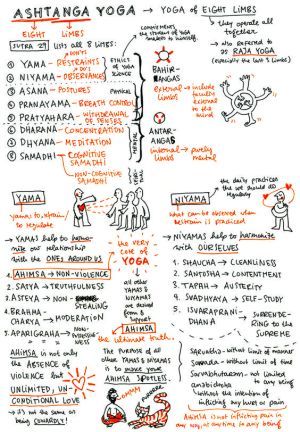 ASHTANGA YOGA → YOGA OF EIGHT LIMBS
EIGHT LIMBS
they operate all together
SUTRA 29 lists all 8 limbs:
also referred to as RAJA YOGA
(especially the last 3 limbs)
DON'TS
① YAMA - RESTRAINTS
DO'S
② NIYAMA - OBSERVANCES
ETHICS OF YOGA SCIENCE
COMMITMENTS the student of YOGA makes to himself
③ ASANA - POSTURES
PHYSICAL
④ PRANAYAMA - BREATH CONTROL
⑤ PRATYAHARA - WITHDRAWAL OF SENSES
⑥ DHARANA - CONCENTRATION
⑦ DHYANA - MEDITATION
⑧ SAMADHI
COGNITIVE SAMADHI
NON-COGNITIVE SAMADHI
MENTAL
BAHIR-ANGAS
external limbs → include involvement external to the mind
ANTAR-ANGAS
internal limbs → purely mental
YAMA
yamas to refrain, to regulate
→ YAMAS help to harmonize our relationship with the ONES AROUND US
1. AHIMSA → NON-VIOLENCE
2. SATYA → TRUTHFULNESS
3. ASTEYA → NON-STEALING
4. BRAHMACHARYA → MODERATION
5. APARIGRAHA → NON-POSSESSIVENESS
AHIMSA is not only the ABSENCE OF VIOLENCE but UNLIMITED, UNCONDITIONAL LOVE
→ it's not the same as being COWARDLY!
the very core of YOGA
all other YAMAS & NIYAMAS are derived from & support AHIMSA
the ultimate truth.
The PURPOSE of all other YAMAS & NIYAMAS is to make your AHIMSA SPOTLESS
OMMM
PURRRR
NIYAMA
→ the daily practices the one should do regularly
what can be observed when restraint is practiced
→ NIYAMAS help to harmonize with OURSELVES
1. SHAUCHA → CLEANLINESS
2. SANTOSHA → CONTENTMENT
3. TAPAH → AUSTERITY
4. SVADHYAYA → SELF-STUDY
5. ISVARAPRANIDHANA → SURRENDERING TO THE SUPREME
Sarvatha - without limit of manner
Sarvada - without limit of time
Sarvabhutanam - not limited to any being
anabidroha - without the intention of inflicting any hurt or pain
AHIMSA is not inflicting pain in any way, at any time to any being